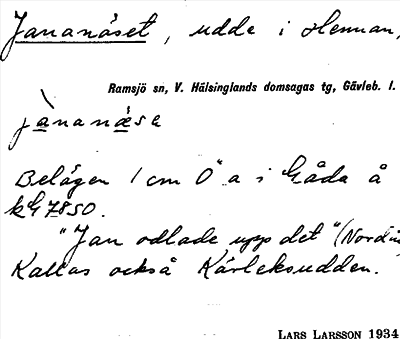 Jananäset, udde i Hennan,
Ramsjö sn, V. Hälsinglands domsagas tg, Gävleb. l.
jànanä́sɛ
Belägen 1 cm O "a i Gåda å
kG 7850.
"Jan odlade upp det" (Nordin
Kallas också Kärleksudden.
LARS LARSSON 1934